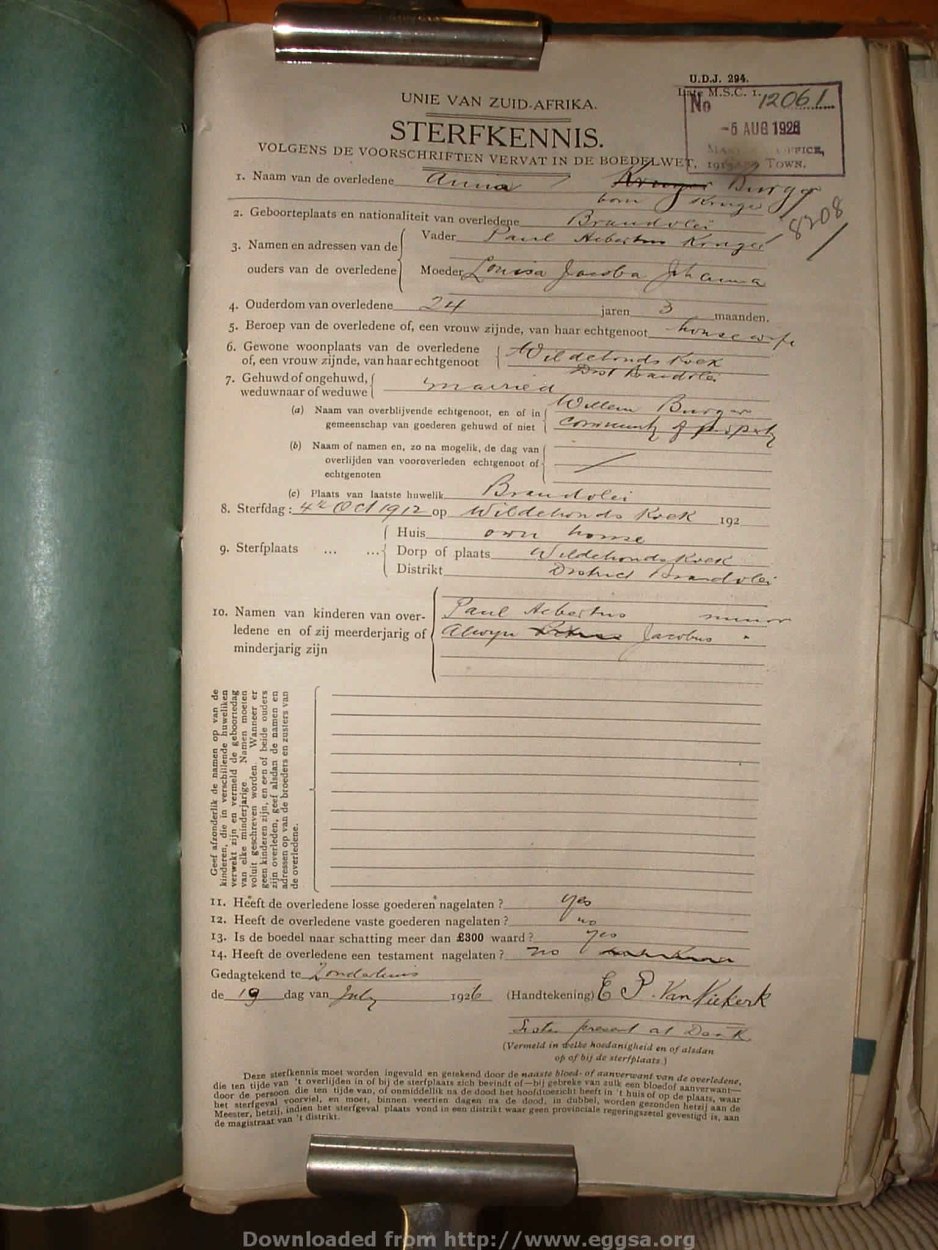 U.D.J. 294.
Late M.S.C. 1.
No 12061
-5 AUG 1926
OFFICE,
TOWN.
UNIE VAN ZUID-AFRIKA.
STERFKENNIS.
VOLGENS DE VOORSCHRIFTEN VERVAT IN DE BOEDELWET, 1913
1. Naam van de overledene Anna Kruger Burger
born Kruger
8208
2. Geboorteplaats en nationaliteit van overledene Brandvlei
3. Namen en adressen van de ouders van de overledene
Vader Paul Kruger
Moeder Louisa Jacoba Johanna
4. Ouderdom van overledene 24 jaren 3 maanden.
5. Beroep van de overledene of, een vrouw zijnde, van haar echtgenoot housewife
6. Gewone woonplaats van de overledene Wildehonds Koek
of, een vrouw zijnde, van haar echtgenoot Dist Brandvlei
7. Gehuwd of ongehuwd, married
weduwnaar of weduwe
(a) Naam van overblijvende echtgenoot, en of in Willem Burger
gemeenschap van goederen gehuwd of niet Community of property
(b) Naam of namen en, zo na mogelik, de dag van
overlijden van vooroverleden echtgenoot of
echtgenoten
(c) Plaats van laatste huwelik Brandvlei
8. Sterfdag: 4th Oct 1912 op Wildehonds Koek 192
Huis own house
9. Sterfplaats ... ... Dorp of plaats Wildehonds Koek
Distrikt District Brandvlei
10. Namen van kinderen van over- Paul minor
ledene en of zij meerderjarig of Alwyn Jacobus "
minderjarig zijn
Geef afzonderlik de namen op van de
kinderen, die in verschillende huweliken
verwekt zijn en vermeld de geboortedag
van elke minderjarige. Namen moeten
voluit geschreven worden. Wanneer er
geen kinderen zijn, en een of beide ouders
zijn overleden, geef alsdan de namen en
adressen op van de broeders en zusters van
de overledene.
11. Heeft de overledene losse goederen nagelaten? yes
12. Heeft de overledene vaste goederen nagelaten? no
13. Is de boedel naar schatting meer dan £300 waard? yes
14. Heeft de overledene een testament nagelaten? no
Gedagtekend te
de 19 dag van July 1926 (Handtekening) E P. Van Niekerk
Sister present at Death
(Vermeld in welke hoedanigheid en of alsdan
op of bij de sterfplaats.)
Deze sterfkennis moet worden ingevuld en getekend door de naaste bloed- of aanverwant van de overledene,
die ten tijde van 't overlijden in of bij de sterfplaats zich bevindt of—bij gebreke van zulk een bloed of aanverwant—
door de persoon die ten tijde van, of onmiddellik na de dood het hoofdtoezicht heeft in 't huis of op de plaats, waar
het sterfgeval voorviel, en moet, binnen veertien dagen na de dood, in dubbel, worden gezonden hetzij aan de
Meester, hetzij, indien het sterfgeval plaats vond in een distrikt waar geen provinciale regeringszetel gevestigd is, aan
de magistraat van 't distrikt.
Downloaded from http://www.eggsa.org